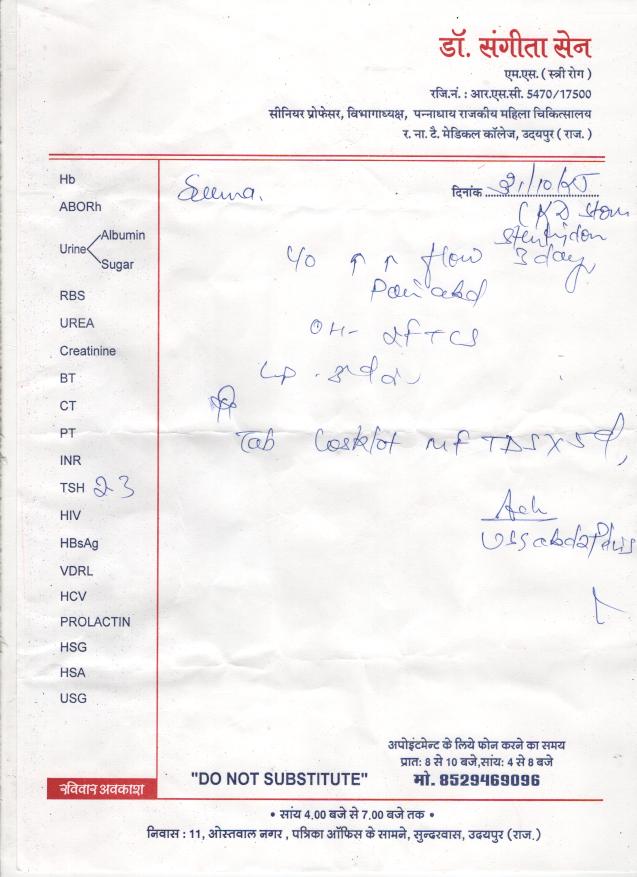 डॉ. संगीता सेन
एम.एस. ( स्त्री रोग )
रजि.नं. : आर.एस.सी. 5470/17500
सीनियर प्रोफेसर, विभागाध्यक्ष, पन्नाधाय राजकीय महिला चिकित्सालय
र. ना. टै. मेडिकल कॉलेज, उदयपुर ( राज. )
दिनांक
Hb
ABORh
Urine Albumin
Sugar
RBS
UREA
Creatinine
BT
CT
PT
INR
TSH 2.3
HIV
HBsAg
VDRL
HCV
PROLACTIN
HSG
HSA
USG
Seema.
flow 3 days
Pain abd
Tab MF TDS X 5
Adv
अपोइंटमेन्ट के लिये फोन करने का समय
प्रात: 8 से 10 बजे,सांय: 4 से 8 बजे
"DO NOT SUBSTITUTE" मो. 8529469096
रविवार अवकाश
• सांय 4.00 बजे से 7.00 बजे तक •
निवास : 11, ओस्तवाल नगर , पत्रिका ऑफिस के सामने, सुन्दरवास, उदयपुर (राज.)